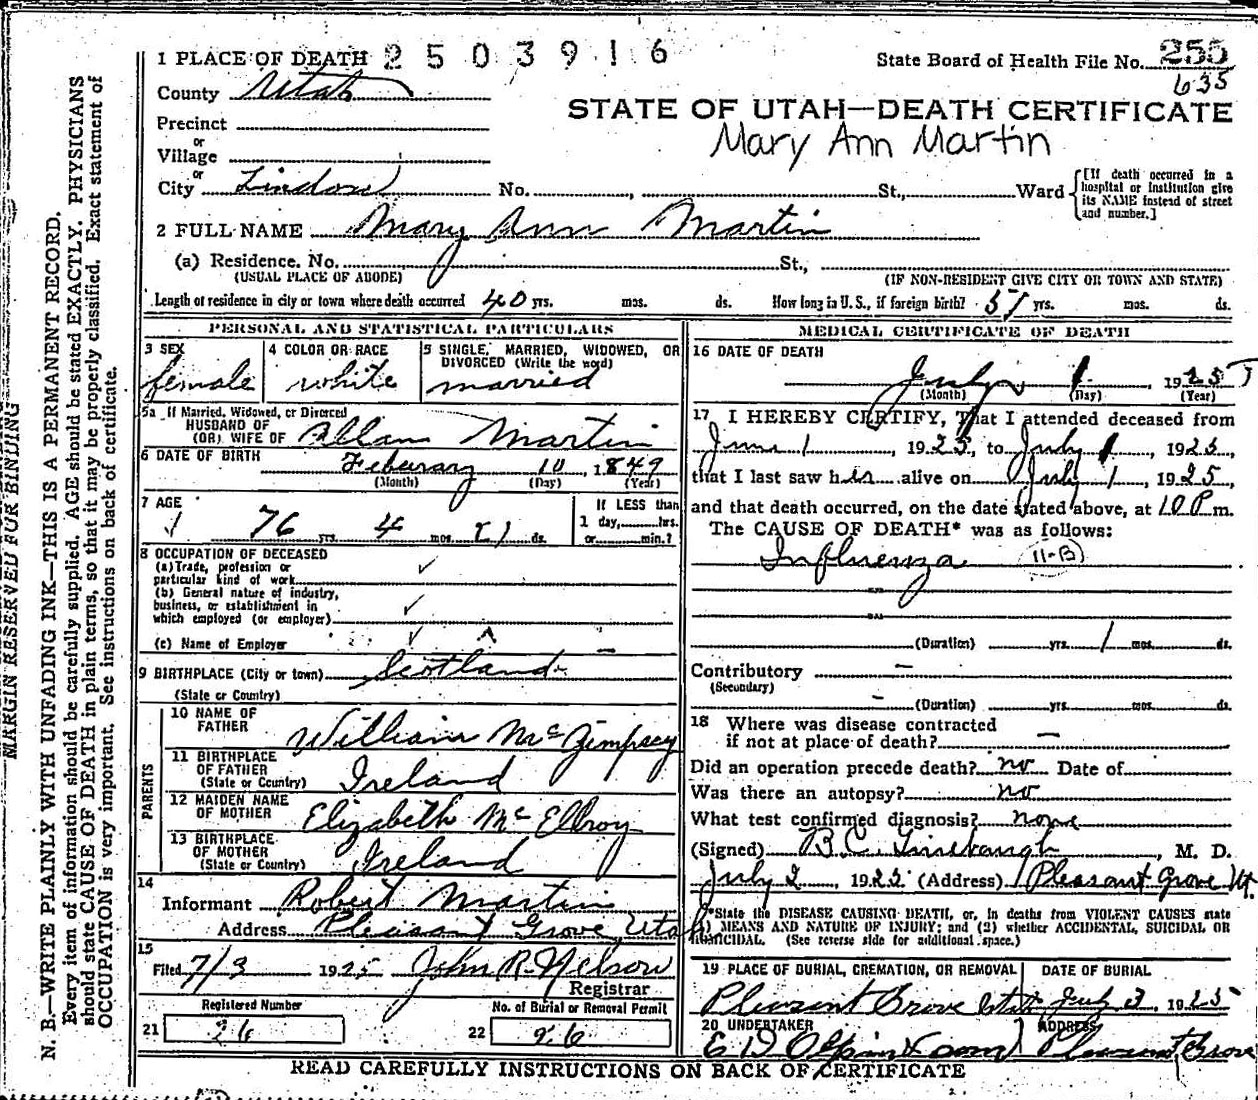 1 PLACE OF DEATH 2503916
State Board of Health File No. 255
635
County Utah
STATE OF UTAH—DEATH CERTIFICATE
Precinct
Mary Ann Martin
or
Village
or
City Lindon No. , St., Ward
[If death occurred in a hospital or institution give its NAME instead of street and number.]
2 FULL NAME Mary Ann Martin
(a) Residence. No. St.,
(USUAL PLACE OF ABODE) (IF NON-RESIDENT GIVE CITY OR TOWN AND STATE)
Length of residence in city or town where death occurred 40 yrs. mos. ds. How long in U. S., if foreign birth? 57 yrs. mos. ds.
PERSONAL AND STATISTICAL PARTICULARS
3 SEX
female
4 COLOR OR RACE
white
5 SINGLE, MARRIED, WIDOWED, OR DIVORCED (Write the word)
married
5a If Married, Widowed, or Divorced
HUSBAND OF
(OR) WIFE OF Allan Martin
6 DATE OF BIRTH Feburary 10 1849
(Month) (Day) (Year)
7 AGE
76 yrs. 4 mos. 21 ds.
If LESS than
1 day, hrs.
or min.?
8 OCCUPATION OF DECEASED
(a) Trade, profession or
particular kind of work
(b) General nature of industry,
business, or establishment in
which employed (or employer)
(c) Name of Employer
9 BIRTHPLACE (City or town) Scotland
(State or Country)
PARENTS
10 NAME OF
FATHER William McGimpsey
11 BIRTHPLACE
OF FATHER
(State or Country) Ireland
12 MAIDEN NAME
OF MOTHER Elizabeth McEllroy
13 BIRTHPLACE
OF MOTHER
(State or Country) Ireland
14
Informant Robert Martin
Address Pleasant Grove, Utah
15
Filed 7/3 1925 John R. Nelson
Registrar
Registered Number
21 26
No. of Burial or Removal Permit
22 26
MEDICAL CERTIFICATE OF DEATH
16 DATE OF DEATH
July 1, 1925
(Month) (Day) (Year)
17 I HEREBY CERTIFY, That I attended deceased from
June 1, 1925, to July 1, 1925,
that I last saw her alive on July 1, 1925,
and that death occurred, on the date stated above, at 10 P m.
The CAUSE OF DEATH* was as follows:
Influenza 11-B
(Duration) yrs. 1 mos. ds.
Contributory —
(Secondary)
— (Duration) yrs. mos. ds.
18 Where was disease contracted
if not at place of death? —
Did an operation precede death? no Date of
Was there an autopsy? no
What test confirmed diagnosis? none
(Signed) B. C. Linebaugh, M. D.
July 2, 1925 (Address) Pleasant Grove Ut.
*State the DISEASE CAUSING DEATH, or, in deaths from VIOLENT CAUSES state
(1) MEANS AND NATURE OF INJURY; and (2) whether ACCIDENTAL, SUICIDAL OR
HOMICIDAL. (See reverse side for additional space.)
19 PLACE OF BURIAL, CREMATION, OR REMOVAL DATE OF BURIAL
Pleasant Grove Utah July 3, 1925
20 UNDERTAKER ADDRESS
Pleasant Grove
READ CAREFULLY INSTRUCTIONS ON BACK OF CERTIFICATE
MARGIN RESERVED FOR BINDING
N. B.—WRITE PLAINLY WITH UNFADING INK—THIS IS A PERMANENT RECORD.
Every item of information should be carefully supplied. AGE should be stated EXACTLY. PHYSICIANS
should state CAUSE OF DEATH in plain terms, so that it may be properly classified. Exact statement of
OCCUPATION is very important. See instructions on back of certificate.